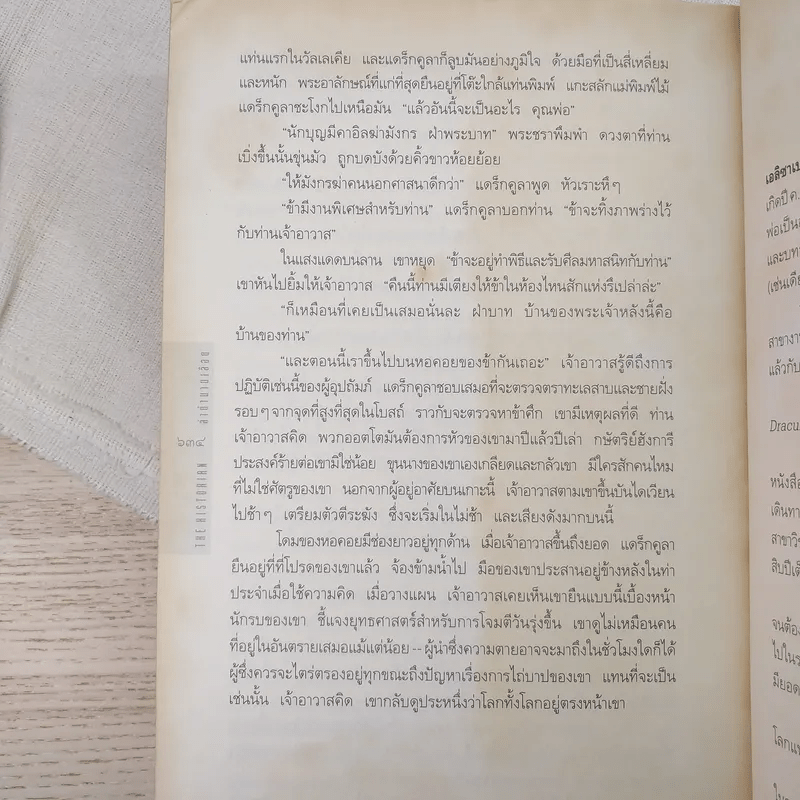 แท่นแรกในวัลเลเคีย และแดร็กคูลาก็ลูบมันอย่างภูมิใจ ด้วยมือที่เป็นสี่เหลี่ยม
และหนัก พระอาลักษณ์ที่แก่ที่สุดยืนอยู่ที่โต๊ะใกล้แท่นพิมพ์ แกะสลักแม่พิมพ์ไม้
แดร็กคูลาชะโงกไปเหนือมัน “แล้วอันนี้จะเป็นอะไร คุณพ่อ”
“นักบุญมีคาอิลฆ่ามังกร ฝ่าพระบาท” พระชราพึมพำ ดวงตาที่ท่าน
เบิ่งขึ้นนั้นขุ่นมัว ถูกบดบังด้วยคิ้วขาวห้อยย้อย
“ให้มังกรฆ่าคนนอกศาสนาดีกว่า” แดร็กคูลาพูด หัวเราะหึๆ
“ข้ามีงานพิเศษสำหรับท่าน” แดร็กคูลาบอกท่าน “ข้าจะทิ้งภาพร่างไว้
กับท่านเจ้าอาวาส”
ในแสงแดดบนลาน เขาหยุด “ข้าจะอยู่ทำพิธีและรับศีลมหาสนิทกับท่าน”
เขาหันไปยิ้มให้เจ้าอาวาส “คืนนี้ท่านมีเตียงให้ข้าในห้องไหนสักแห่งรึเปล่าล่ะ”
“ก็เหมือนที่เคยเป็นเสมอนั่นละ ฝ่าบาท บ้านของพระเจ้าหลังนี้คือ
บ้านของท่าน”
“และตอนนี้เราขึ้นไปบนหอคอยของข้ากันเถอะ” เจ้าอาวาสรู้ดีถึงการ
ปฏิบัติเช่นนี้ของผู้อุปถัมภ์ แดร็กคูลาชอบเสมอที่จะตรวจตราทะเลสาบและชายฝั่ง
รอบๆจากจุดที่สูงที่สุดในโบสถ์ ราวกับจะตรวจหาข้าศึก เขามีเหตุผลที่ดี ท่าน
เจ้าอาวาสคิด พวกออตโตมันต้องการหัวของเขามาปีแล้วปีเล่า กษัตริย์ฮังการี
ประสงค์ร้ายต่อเขามิใช่น้อย ขุนนางของเขาเองเกลียดและกลัวเขา มีใครสักคนไหม
ที่ไม่ใช่ศัตรูของเขา นอกจากผู้อยู่อาศัยบนเกาะนี้ เจ้าอาวาสตามเขาขึ้นบันไดเวียน
ไปช้าๆ เตรียมตัวตีระฆัง ซึ่งจะเริ่มในไม่ช้า และเสียงดังมากบนนี้
โดมของหอคอยมีช่องยาวอยู่ทุกด้าน เมื่อเจ้าอาวาสขึ้นถึงยอด แดร็กคูลา
ยืนอยู่ที่ที่โปรดของเขาแล้ว จ้องข้ามน้ำไป มือของเขาประสานอยู่ข้างหลังในท่า
ประจำเมื่อใช้ความคิด เมื่อวางแผน เจ้าอาวาสเคยเห็นเขายืนแบบนี้เบื้องหน้า
นักรบของเขา ชี้แจงยุทธศาสตร์สำหรับการโจมตีวันรุ่งขึ้น เขาดูไม่เหมือนคน
ที่อยู่ในอันตรายเสมอแม้แต่น้อย -- ผู้นำซึ่งความตายอาจจะมาถึงในชั่วโมงใดก็ได้
ผู้ซึ่งควรจะไตร่ตรองอยู่ทุกขณะถึงปัญหาเรื่องการไถ่บาปของเขา แทนที่จะเป็น
เช่นนั้น เจ้าอาวาสคิด เขากลับดูประหนึ่งว่าโลกทั้งโลกอยู่ตรงหน้าเขา
THE HISTORIAN ล่าตำนานเลือด
๖๓๔
เกิดปี ค.
พ่อเป็น
และบท
สาขางาน
แล้วกับ
Dracu
หนังสือ
เดินทา
สาขาวิ
สิบปีเต็
จนต้อง
ไปในร
มียอด